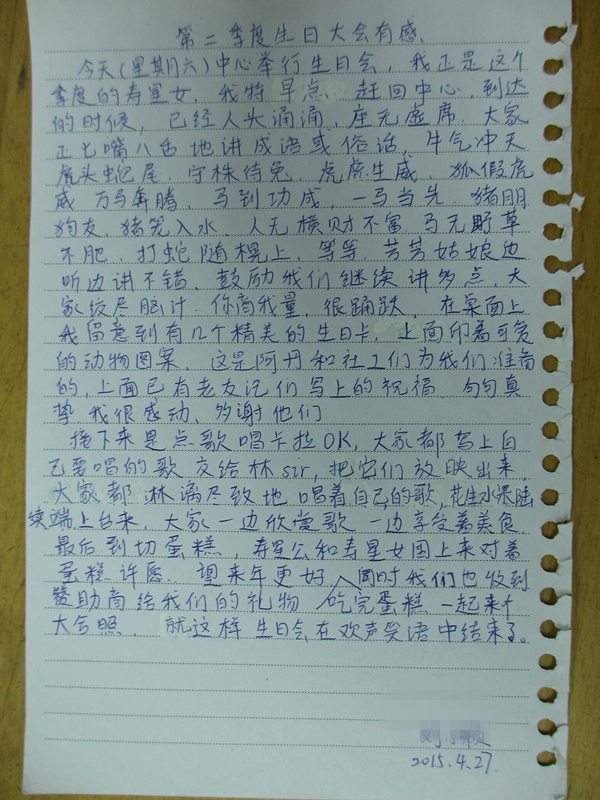 第二季度生日大会有感.
今天(星期六)中心举行生日会,我正是这个
季度的寿星女,我特早点 赶回中心,到达
的时候,已经人头涌涌,座无虚席.大家
正七嘴八舌地讲成语或俗话,牛气冲天
虎头蛇尾.守株待兔.虎虎生威.狐假虎
威 万马奔腾,马到功成,一马当先.猪朋
狗友.猪笼入水.人无横财不富 马无野草
不肥.打蛇随棍上,等等 芳芳姑娘边
听边讲不错、鼓励我们继续讲多点,大
家绞尽脑汁.你商我量,很踊跃,在桌面上
我留意到有几个精美的生日卡,上面印着可爱
的动物图案.这是阿丹和社工们为我们准备
的,上面已有老友记们写上的祝福.句句真
挚 我很感动、多谢他们
接下来是点歌唱卡拉OK,大家都写上自
己要唱的歌 交给林sir,把它们放映出来,
大家都淋漓尽致地唱着自己的歌,花生水果陆
续端上台来,大家一边欣赏歌 一边享受着美食.
最后到切蛋糕,寿星公和寿星女围上来对着
蛋糕许愿.望来年更好 同时我们也收到
赞助商给我们的礼物 吃完蛋糕.一起来个
大合照. 就这样 生日会在欢声笑语中结束了。
2015.4.27.